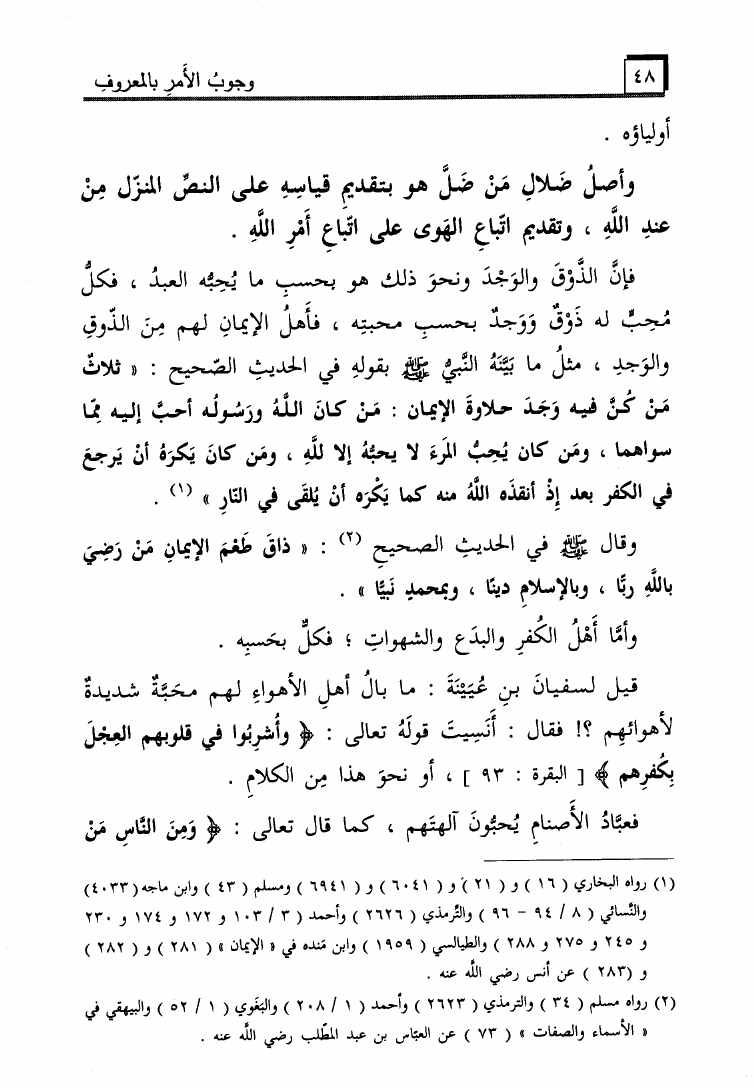 ٤٨
وجوبُ الأَمرِ بالمعروفِ
أولياؤه .
وأصلُ ضَلالِ مَنْ ضَلَّ هو بتقديمِ قياسِهِ على النصِّ المنزّل مِنْ
عندِ اللَّهِ ، وتقديم اتّباعِ الهَوى على اتّباعِ أَمْرِ اللَّهِ .
فإنَّ الذَّوْقَ والوَجْدَ ونحوَ ذلك هو بحسبِ ما يُحِبُّه العبدُ ، فكلُّ
مُحِبٍّ له ذَوْقٌ وَوَجدٌ بحسبِ محبتِه ، فأَهلُ الإيمانِ لهم مِنَ الذّوقِ
والوَجدِ ، مثلُ ما بَيَّنَهُ النَّبيُّ ﷺ بقولهِ في الحديثِ الصّحيح : « ثلاثٌ
مَنْ كُنَّ فيه وَجَدَ حلاوةَ الإيمان : مَنْ كانَ اللَّهُ ورَسُولُه أحبَّ إليه مِمّا
سواهما ، ومَن كان يُحِبُّ المَرءَ لا يحبُّهُ إلا للَّهِ ، ومَن كانَ يَكرَهُ أنْ يَرجعَ
في الكفر بعد إذْ أنقذَه اللَّهُ منه كما يَكْرَه أنْ يُلقَى في النّارِ » (١) .
وقال ﷺ في الحديثِ الصحيحِ (٢) : « ذاقَ طَعْمَ الإيمانِ مَنْ رَضِيَ
باللَّهِ ربًّا ، وبالإسلامِ دينًا ، وبمحمدٍ نَبيًّا » .
وأمَّا أَهْلُ الكُفرِ والبدَع والشهواتِ ؛ فكلٌّ بحَسبِه .
قيل لسفيانَ بنِ عُيَيْنَةَ : ما بالُ أهلِ الأهواءِ لهم محَبَّةٌ شديدةٌ
لأهوائهِم ؟! فقال : أَنَسِيتَ قولَهُ تعالى : ﴿ وأُشرِبُوا في قلوبهم العِجْلَ
بِكُفرِهم ﴾ [ البقرة : ٩٣ ] ، أو نحوَ هذا مِن الكلامِ .
فعبَّادُ الأَصنامِ يُحبُّونَ آلهتَهم ، كما قال تعالى : ﴿ وَمِنَ النَّاسِ مَنْ
(١) رواه البخاري ( ١٦ ) و ( ٢١ ) و ( ٦٠٤١ ) و ( ٦٩٤١ ) ومسلم ( ٤٣ ) وابن ماجه (٤٠٣٣)
والنَّسائي ( ٨ / ٩٤ - ٩٦ ) والتّرمذي ( ٢٦٢٦ ) وأحمد ( ٣ / ١٠٣ و ١٧٢ و ١٧٤ و ٢٣٠
و ٢٤٥ و ٢٧٥ و ٢٨٨ ) والطيالسي ( ١٩٥٩ ) وابن مَنده في « الإيمان » ( ٢٨١ ) و ( ٢٨٢ )
و (٢٨٣ ) عن أنس رضي اللَّه عنه .
(٢) رواه مسلم ( ٣٤ ) والترمذي ( ٢٦٢٣ ) وأحمد ( ١ / ٢٠٨ ) والبَغَوي ( ١ / ٥٢ ) والبيهقي في
« الأسماء والصفات » ( ٧٣ ) عن العبّاس بن عبد المطّلب رضي اللَّه عنه .